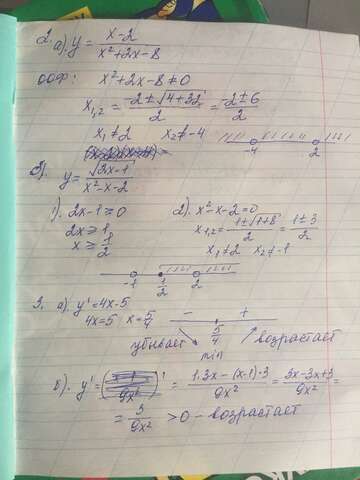 2. а). y = x-2 / x²+2x-8
ООФ: x²+2x-8≠0
x₁,₂ = -2±√4+32 / 2 = -2±6 / 2
x₁≠2 x₂≠-4
-4 2
y = √2x-1 / x²-x-2
1). 2x-1≥0 2). x²-x-2=0
2x≥1 x₁,₂ = 1±√1+8 / 2 = 1±3 / 2
x≥1/2 x₁≠2 x₂≠-1
-1 1/2 2
3. а). y' = 4x-5 - +
4x=5 x=5/4 5/4
убывает min возрастает
в). y' = = 1·3x-(x-1)·3 / 9x² = 3x-3x+3 / 9x² =
= 3 / 9x² >0 - возрастает